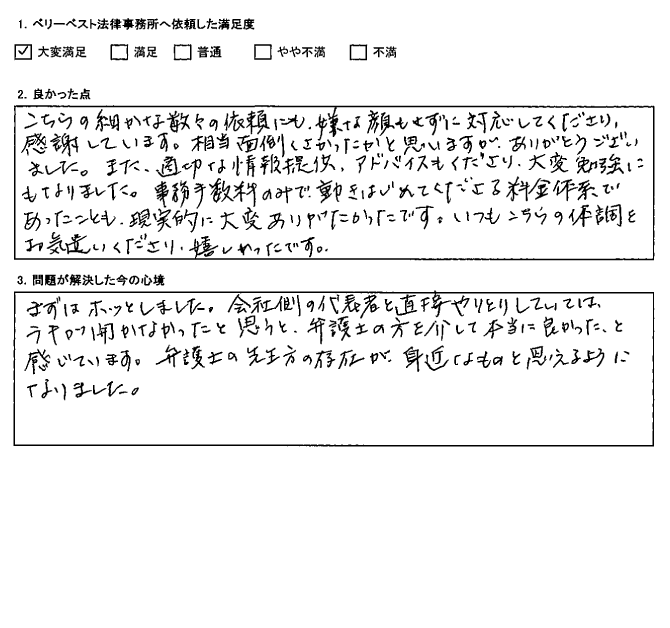 1. ベリーベスト法律事務所へ依頼した満足度
☑ 大変満足 □ 満足 □ 普通 □ やや不満 □ 不満
2. 良かった点
こちらの細かな数々の依頼にも、嫌な顔もせずに対応してくださり、
感謝しています。相当面倒くさかったかと思いますが、ありがとうござい
ました。また、適切な情報提供、アドバイスもくださり、大変勉強に
もなりました。事務手数料のみで、動きはじめてくださる料金体系で
あったことも、現実的に大変ありがたかったです。いつもこちらの体調を
お気遣いくださり、嬉しかったです。
3. 問題が解決した今の心境
まずはホッとしました。会社側の代表者と直接やりとりしていては、
ラチが開かなかったと思うと、弁護士の方を介して本当に良かった、と
感じています。弁護士の先生方の存在が、身近なものと思えるように
なりました。